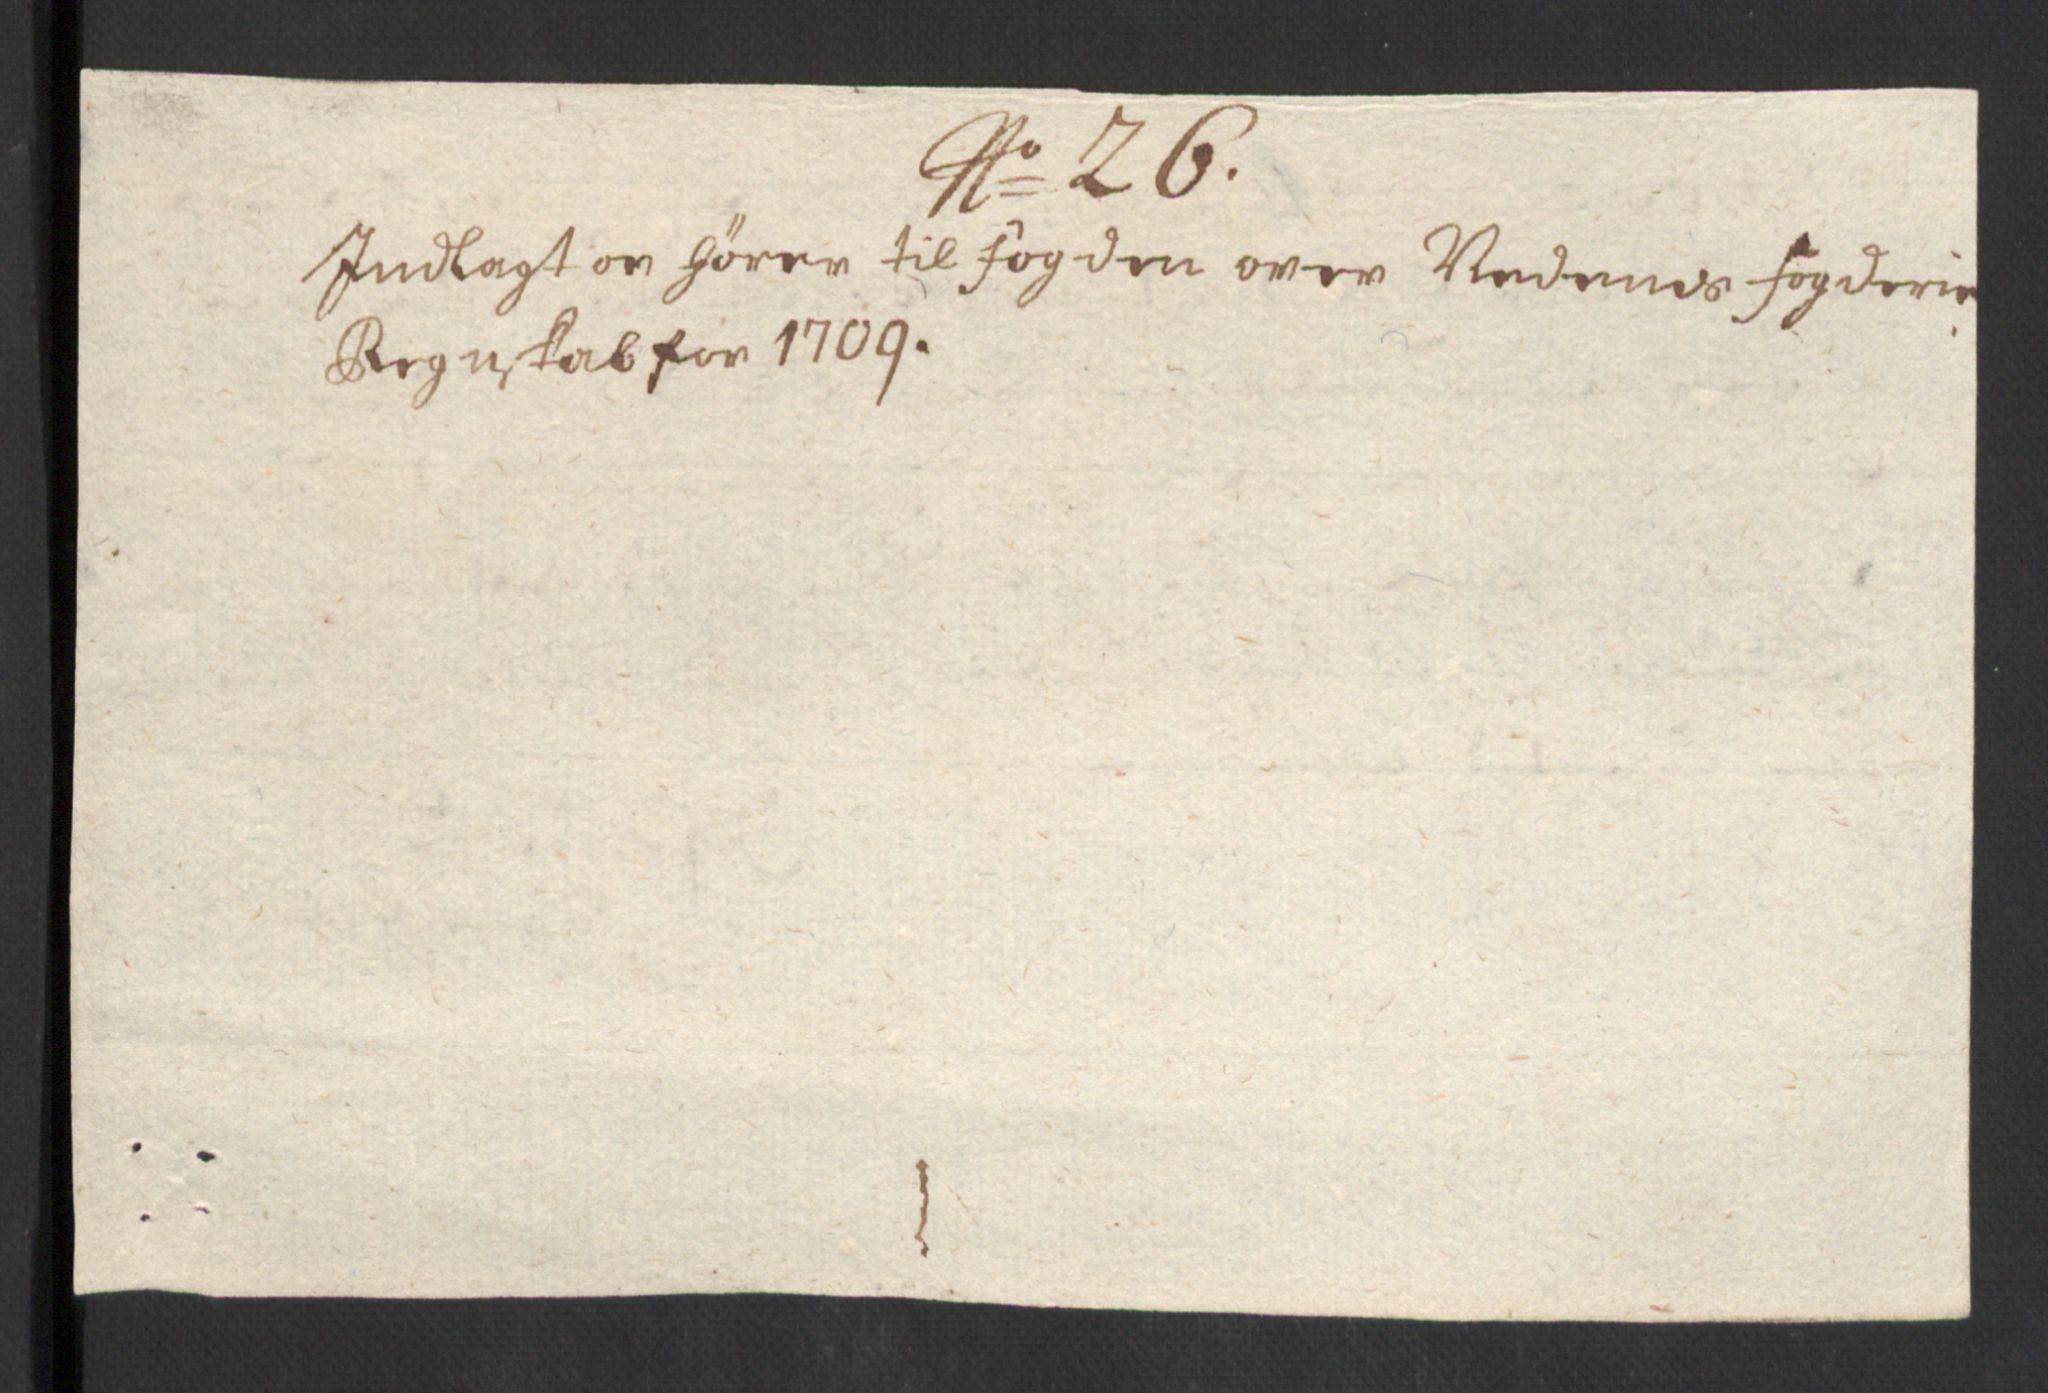 No 26.
Indlagt oc hörer til fogden over Nedenes fogderie
Regnskab for 1709.